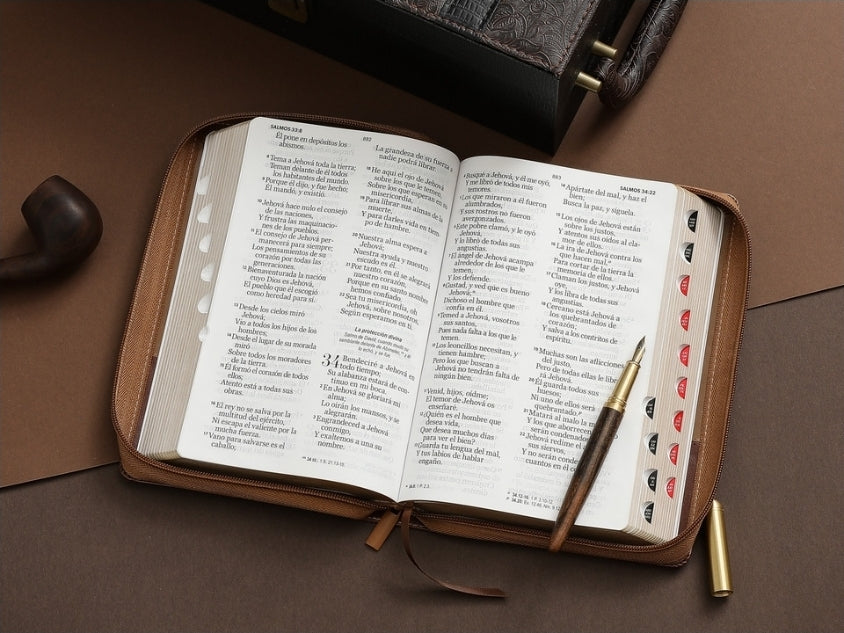 SALMOS 33:8
Él pone en depósitos los
abismos.
8 Tema a Jehová toda la tierra;
Teman delante de él todos
los habitantes del mundo.
9 Porque él dijo, y fue hecho;
Él mandó, y existió.
10 Jehová hace nulo el consejo
de las naciones,
Y frustra las maquinacio-
nes de los pueblos.
11 El consejo de Jehová per-
manecerá para siempre;
Los pensamientos de su
corazón por todas las
generaciones.
12 Bienaventurada la nación
cuyo Dios es Jehová,
El pueblo que él escogió
como heredad para sí.
13 Desde los cielos miró
Jehová;
Vio a todos los hijos de los
hombres;
14 Desde el lugar de su morada
miró
Sobre todos los moradores
de la tierra.
15 Él formó el corazón de todos
ellos;
Atento está a todas sus
obras.
16 El rey no se salva por la
multitud del ejército,
Ni escapa el valiente por la
mucha fuerza.
17 Vano para salvarse es el
caballo;
892
La grandeza de su fuerza a
nadie podrá librar.
18 He aquí el ojo de Jehová
sobre los que le temen,
Sobre los que esperan en su
misericordia,
19 Para librar sus almas de la
muerte,
Y para darles vida en tiem-
po de hambre.
20 Nuestra alma espera a
Jehová;
Nuestra ayuda y nuestro
escudo es él.
21 Por tanto, en él se alegrará
nuestro corazón,
Porque en su santo nombre
hemos confiado.
22 Sea tu misericordia, oh
Jehová, sobre nosotros,
Según esperamos en ti.
La protección divina
Salmo de David, cuando mudó su
semblante delante de Abimelec, y él
lo echó, y se fue.
34 Bendeciré a Jehová en
todo tiempo;
Su alabanza estará de con-
tinuo en mi boca.
2 En Jehová se gloriará mi
alma;
Lo oirán los mansos, y se
alegrarán.
3 Engrandeced a Jehová
conmigo,
Y exaltemos a una su
nombre.
34 tít. 1 S. 21.13-15.
893
4 Busqué a Jehová, y él me oyó,
Y me libró de todos mis
temores.
5 Los que miraron a él fueron
alumbrados,
Y sus rostros no fueron
avergonzados.
6 Este pobre clamó, y le oyó
Jehová,
Y lo libró de todas sus
angustias.
7 El ángel de Jehová acampa
alrededor de los que le
temen,
Y los defiende.
8 Gustad, y ved que es bueno
Jehová;
Dichoso el hombre que
confía en él.
9 Temed a Jehová, vosotros
sus santos,
Pues nada falta a los que le
temen.
10 Los leoncillos necesitan, y
tienen hambre;
Pero los que buscan a
Jehová no tendrán falta de
ningún bien.
11 Venid, hijos, oídme;
El temor de Jehová os
enseñaré.
12 ¿Quién es el hombre que
desea vida,
Que desea muchos días
para ver el bien?
13 Guarda tu lengua del mal,
Y tus labios de hablar
engaño.
34.8: 1 P. 2.3.
SALMOS 34:22
14 Apártate del mal, y haz el
bien;
Busca la paz, y síguela.
15 Los ojos de Jehová están
sobre los justos,
Y atentos sus oídos al cla-
mor de ellos.
16 La ira de Jehová contra los
que hacen mal,
Para cortar de la tierra la
memoria de ellos.
17 Claman los justos, y Jehová
oye,
Y los libra de todas sus
angustias.
18 Cercano está Jehová a
los quebrantados de
corazón;
Y salva a los contritos de
espíritu.
19 Muchas son las aflicciones
del justo,
Pero de todas ellas le librará
Jehová.
20 Él guarda todos sus
huesos;
Ni uno de ellos será
quebrantado.
21 Matará al malo la
Y los que aborrecen
serán condenados
22 Jehová redime el
sus siervos,
Y no serán conde
cuantos en é
34.12-16: 1 P. 3.10-12.
34.20: Ex. 12.46; Nm. 9.12